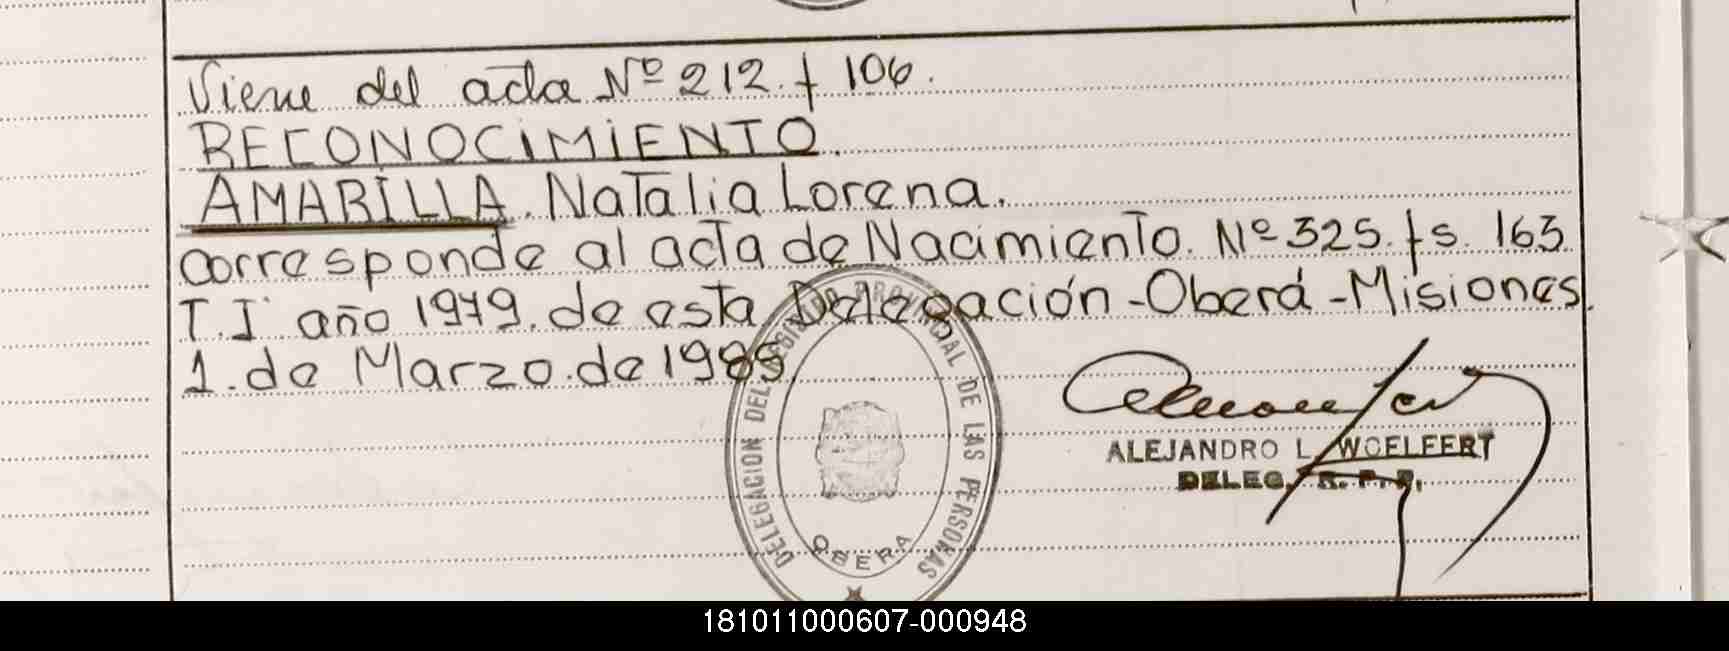 Viene del acta Nº 212. f 106.
RECONOCIMIENTO.
AMARILLA. Natalia Lorena.
corresponde al acta de Nacimiento. Nº 325. fs. 163
T.Iº año 1979. de esta Delegación - Oberá - Misiones.
1. de Marzo. de 1985
DELEGACION DEL REGISTRO PROVINCIAL DE LAS PERSONAS
OBERA
ALEJANDRO L. WOELFERT
DELEG. R. P. P.
181011000607-000948